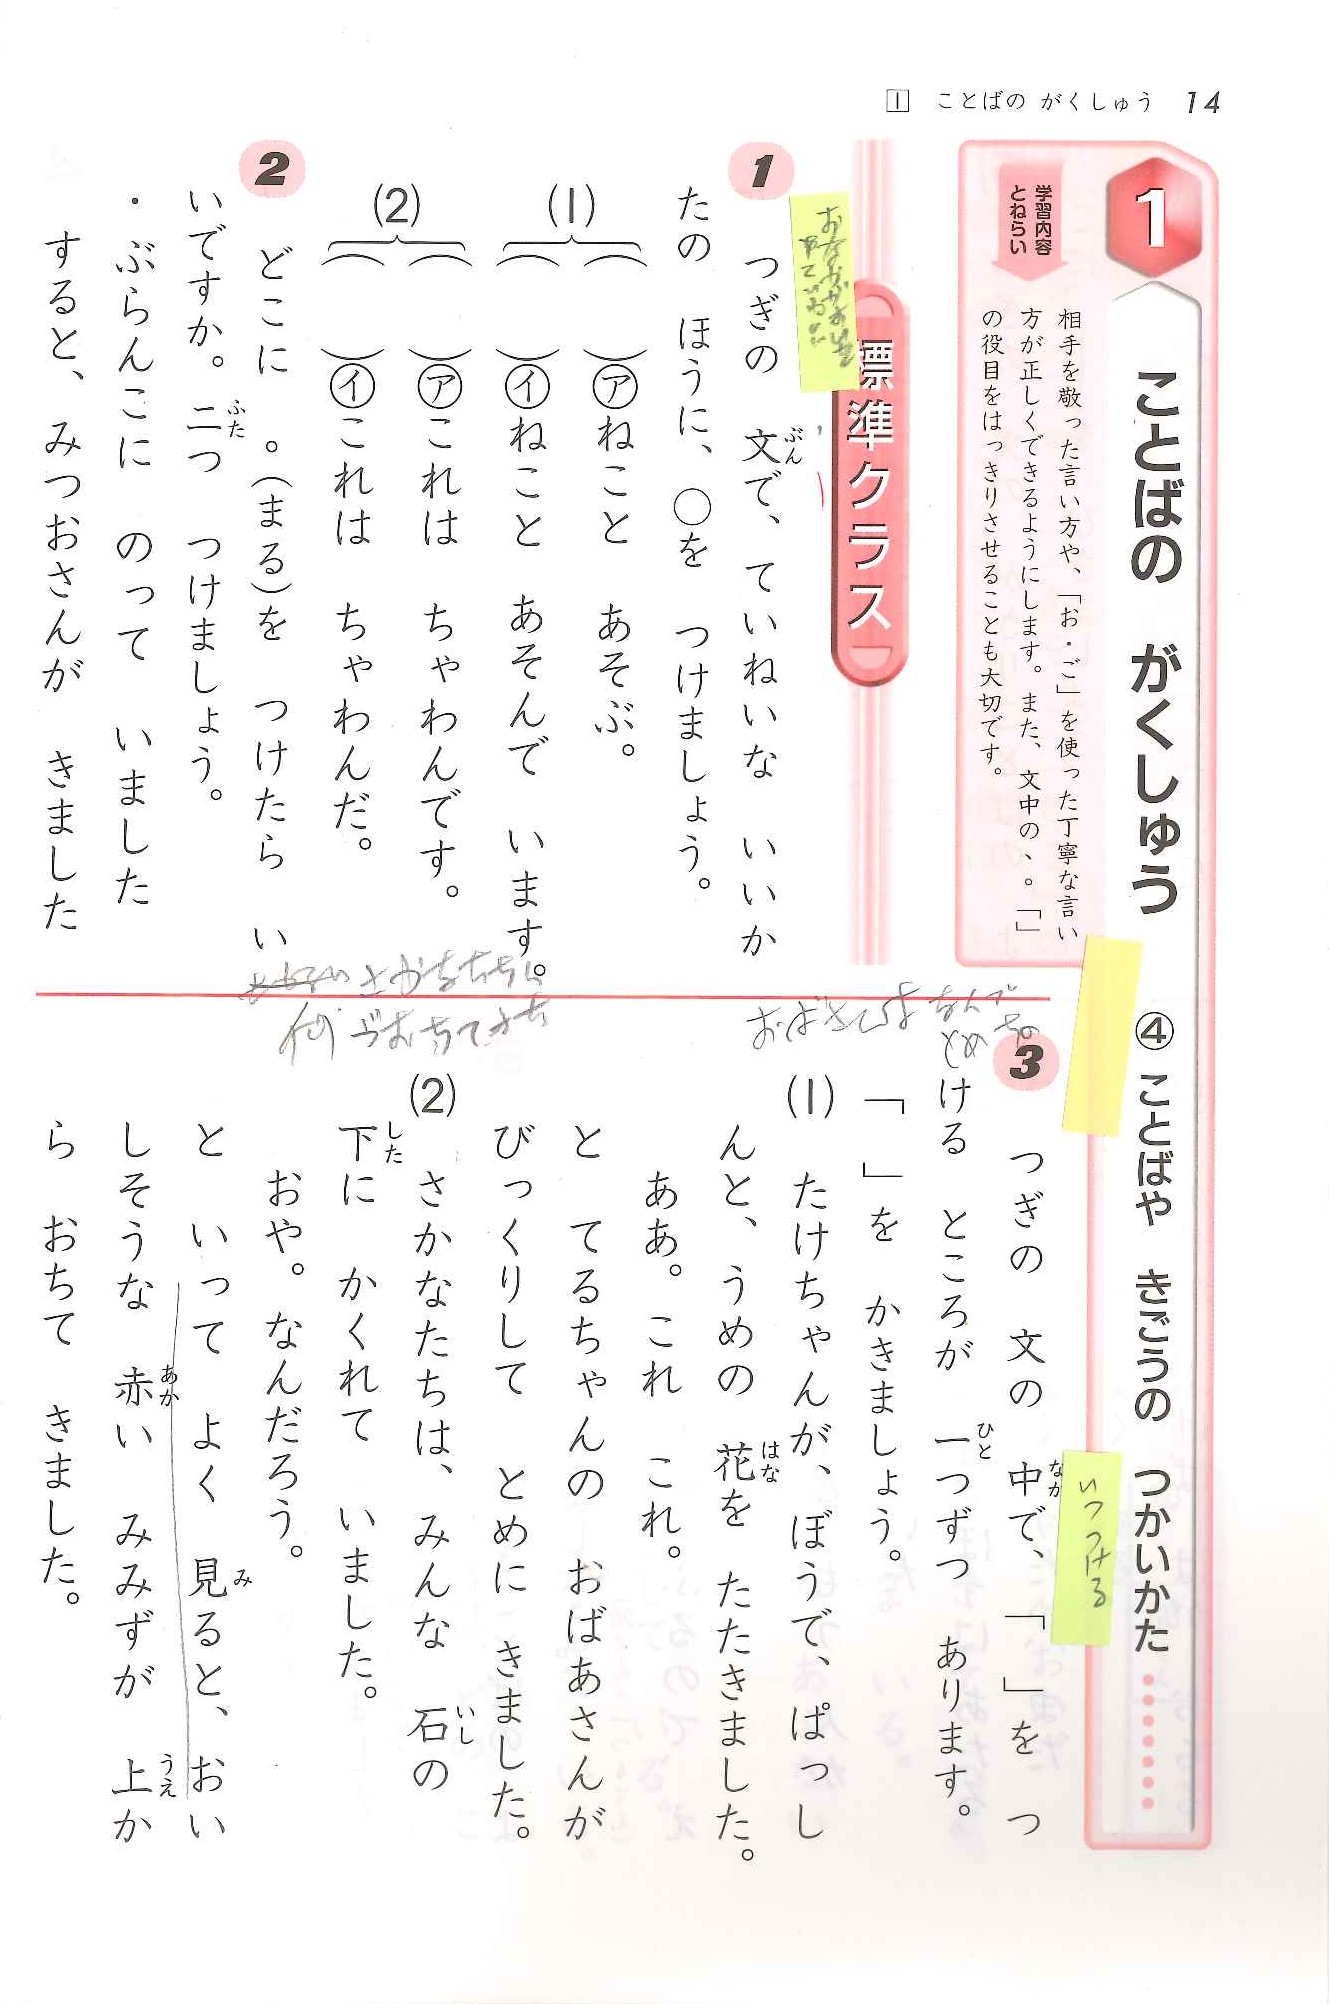 1 ことばの がくしゅう 14
1 ことばの がくしゅう
④ ことばや きごうの つかいかた
学習内容
とねらい
相手を敬った言い方や、「お・ご」を使った丁寧な言い
方が正しくできるようにします。また、文中の、。「」
の役目をはっきりさせることも大切です。
標準クラス
1
つぎの 文で、ていねいな いいか
ぶん
たの ほうに、○を つけましょう。
(1)
( )㋐ねこと あそぶ。
( )㋑ねこと あそんで います。
(2)
( )㋐これは ちゃわんです。
( )㋑これは ちゃわんだ。
2
どこに 。(まる)を つけたら い
いですか。二つ つけましょう。
ふた
・ぶらんこに のって いました
すると、みつおさんが きました
3
つぎの 文の 中で、「 」を つ
なか
ける ところが 一つずつ あります。
ひと
「 」を かきましょう。
(1)
たけちゃんが、ぼうで、ぱっし
んと、うめの 花を たたきました。
はな
ああ。これ これ。
と てるちゃんの おばあさんが
びっくりして とめに きました。
(2)
さかなたちは、みんな 石の
いし
下に かくれて いました。
した
おや。なんだろう。
と いって よく 見ると、おい
み
しそうな 赤い みみずが 上か
あか
うえ
ら おちて きました。
いつつける